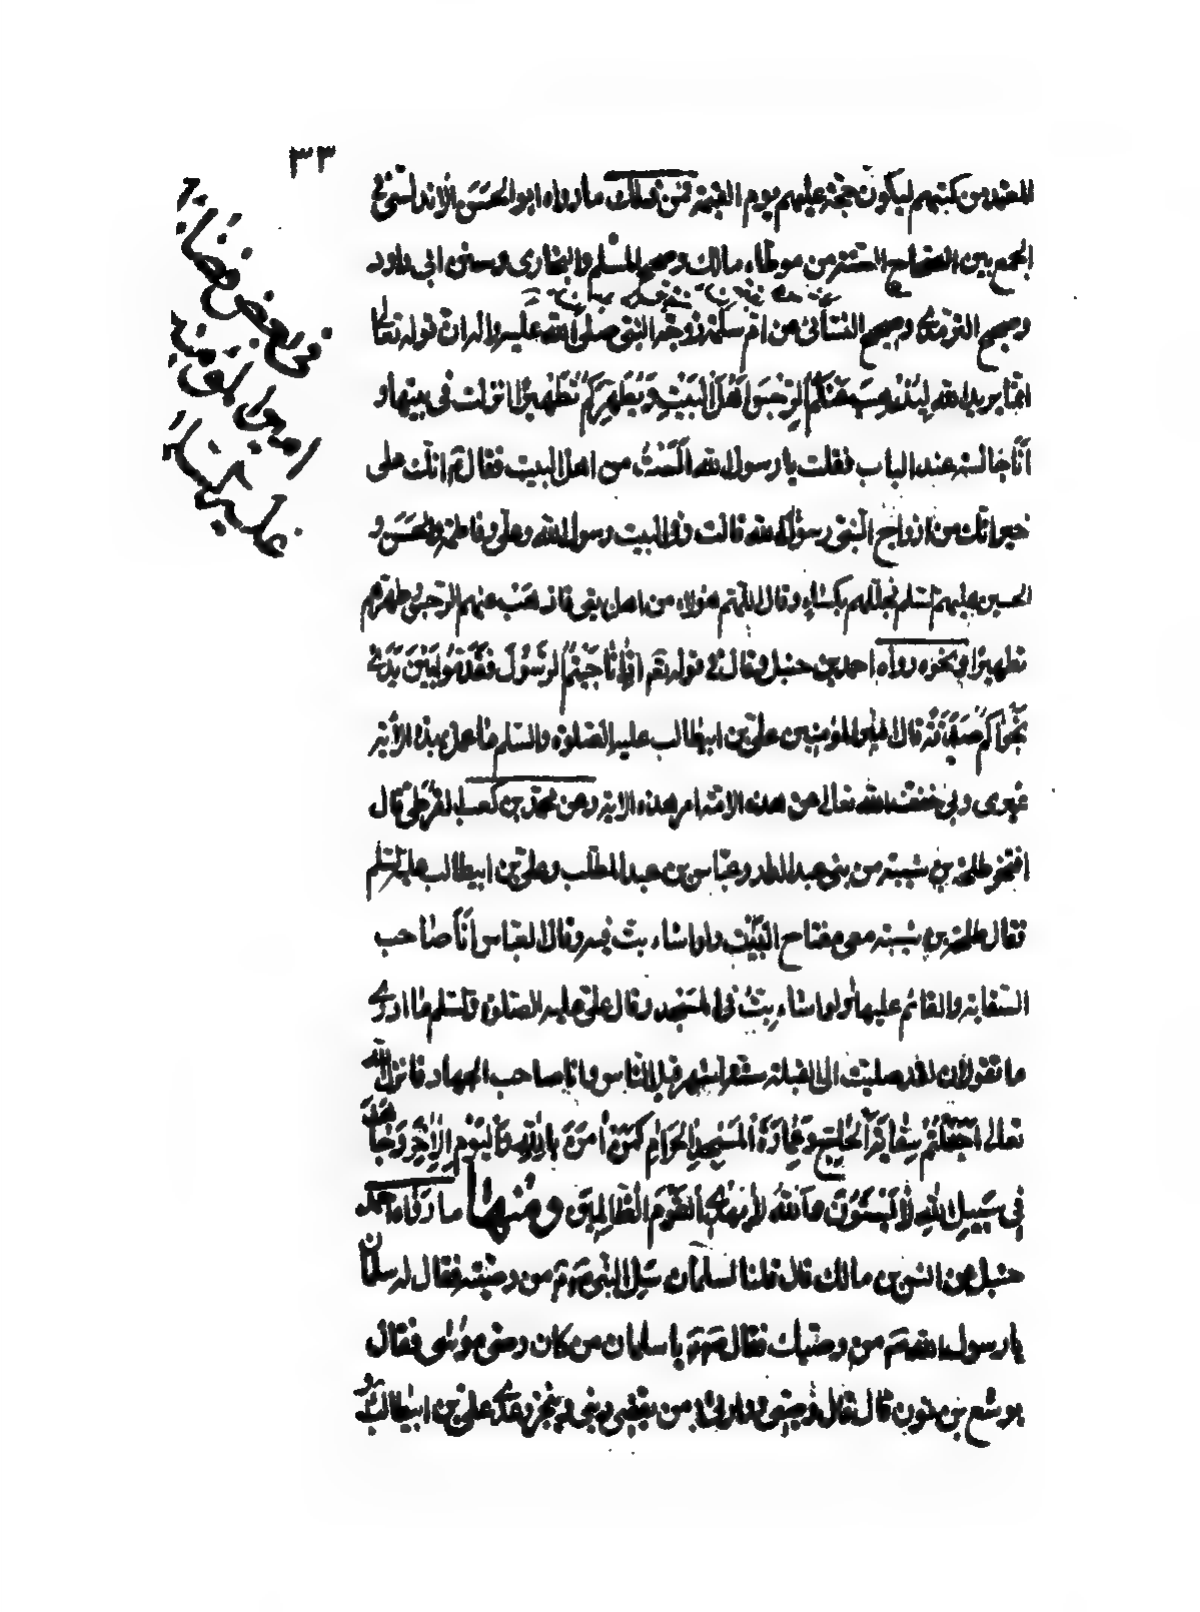 ٣٣
فی بعض فضائل
امیر المؤمنین
علیه السلام
المعتمد من كتبهم ليكون حجة عليهم يوم القيمة فمن ذلك ما رواه ابو الحسن الأندلسی فی
الجمع بين الصحاح الستة من موطاء مالك وصحيح المسلم والبخاری وسنن ابی داود
وصحيح الترمذی وصحيح النسائی عن ام سلمة زوجة النبی صلی الله عليه واله ان قوله تعالی
انما يريد الله ليذهب عنكم الرجس اهل البيت ويطهركم تطهيرا انزلت فی بيتها و
انا جالسة عند الباب فقلت يا رسول الله الست من اهل البيت فقال ص انك علی
خير انك من ازواج النبی رسول الله قالت وفی البيت رسول الله وعلی وفاطمة والحسن و
الحسين عليهم السلم فجللهم بكساء وقال اللهم هؤلاء من اهل بيتی فاذهب عنهم الرجس وطهرهم
تطهيرا ونحوه رواه احمد بن حنبل وقال فی قوله تعم اذا ناجيتم الرسول فقدموا بين يدی
نجواكم صدقة قال امير المؤمنين علی بن ابيطالب عليه الصلوة والسلم ما عمل بهذه الأية
غيری وبی خفف الله تعالی عن هذه الامة امر هذه الاية وعن محمد بن كعب القرظی قال
افتخر طلحة بن شيبة من بنی عبد الدار وعباس بن عبد المطلب وعلی بن ابيطالب عليه السلم
فقال طلحة بن شيبة معی مفتاح البيت ولو اشاء بت فيه وقال العباس انا صاحب
السقاية والقائم عليها ولو اشاء بت فی المسجد وقال علی عليه الصلوة والسلم ما ادری
ما تقولان لقد صليت الی القبلة ستة اشهر قبل الناس وانا صاحب الجهاد فانزل الله
تعالی اجعلتم سقاية الحاج وعمارة المسجد الحرام كمن امن بالله واليوم الاخر وجاهد
فی سبيل الله لا يستوون عند الله لا يهدی القوم الظالمين ومنها ما رواه احمد
حنبل عن انس بن مالك قال قلنا لسلمان سل النبی ص من وصيه فقال له سلمان
يا رسول الله ص من وصيك فقال ص يا سلمان من كان وصی موسی فقال
يوشع بن نون قال فقال وصيی ووارثی من يقضی دينی وينجز وعدی علی بن ابيطالب